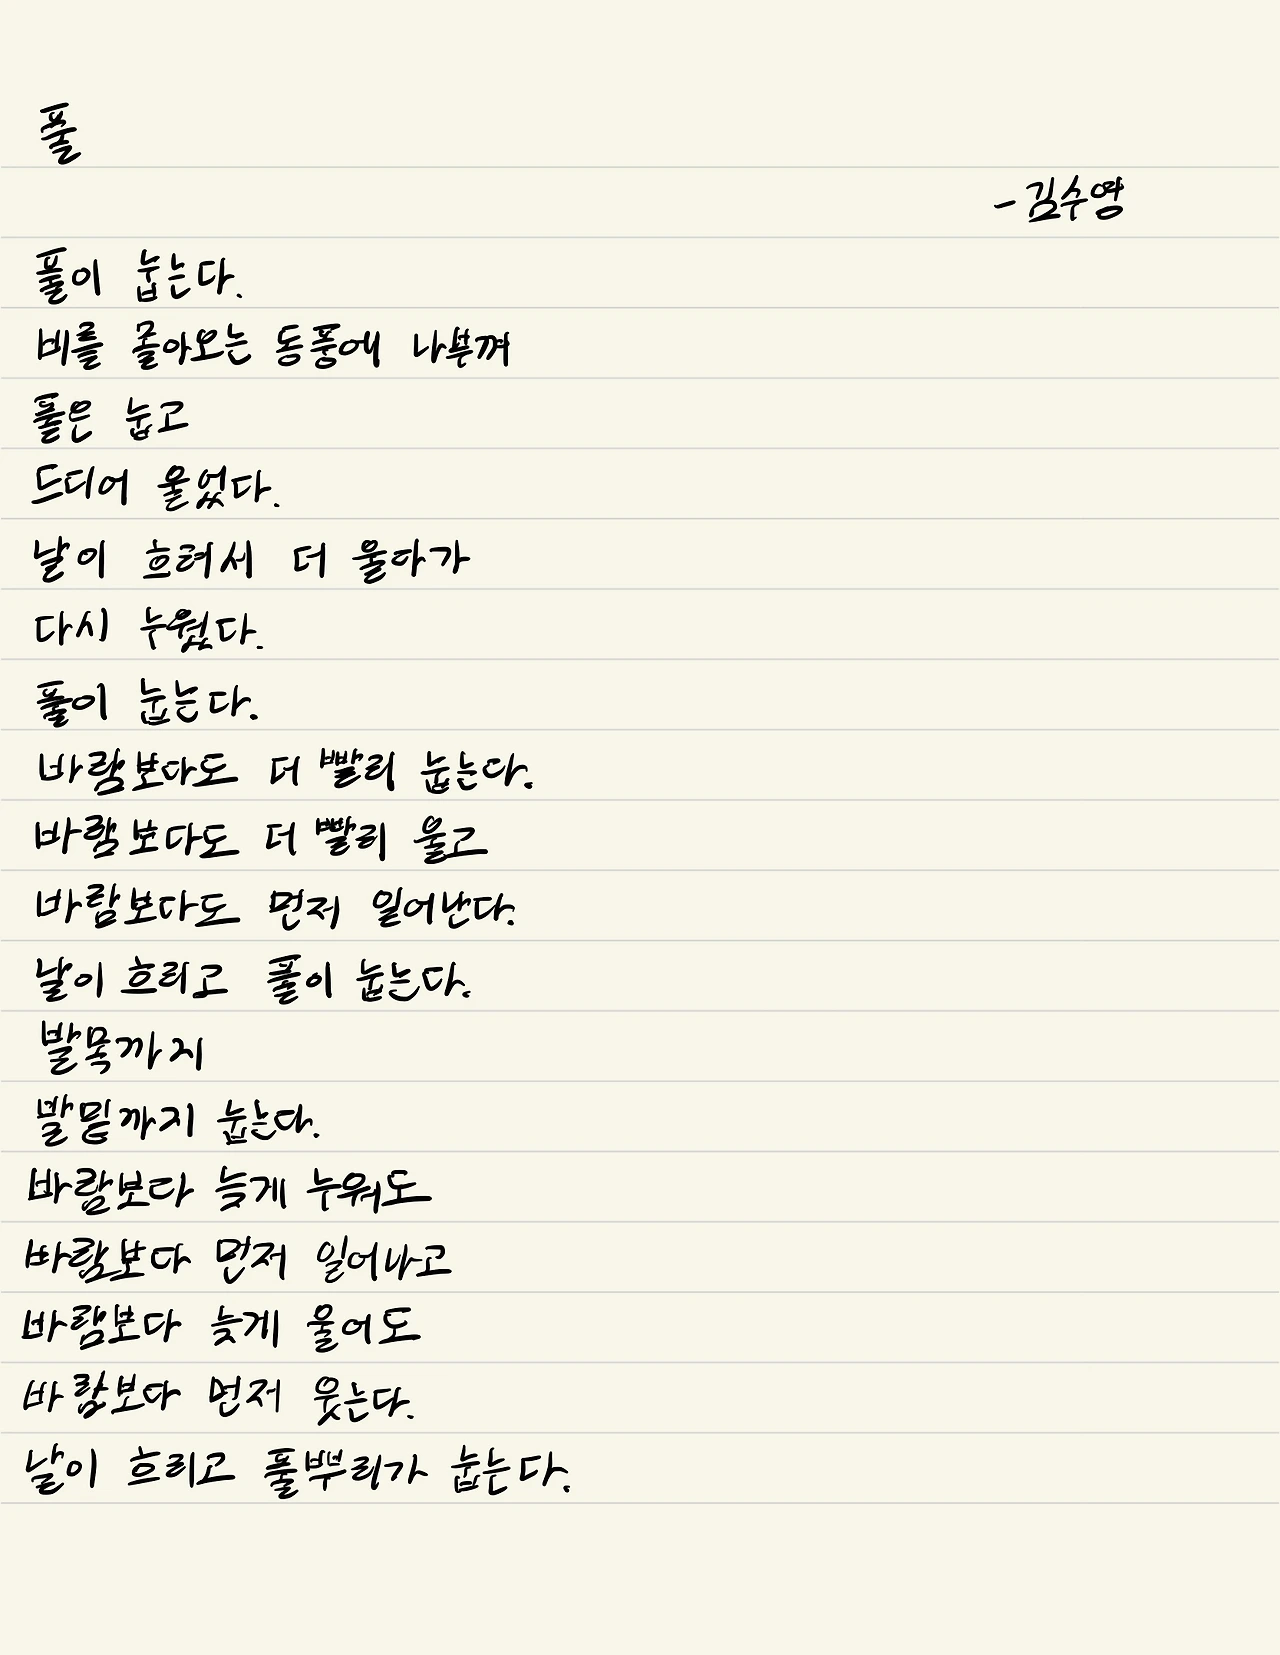 풀
- 김수영
풀이 눕는다.
비를 졸아오는 동풍에 나부껴
풀은 눕고
드디어 울었다.
날이 흐려서 더 울다가
다시 누웠다.
풀이 눕는다.
바람보다도 더 빨리 눕는다.
바람보다도 더 빨리 울고
바람보다도 먼저 일어난다.
날이 흐리고 풀이 눕는다.
발목까지
발밑까지 눕는다.
바람보다 늦게 누워도
바람보다 먼저 일어나고
바람보다 늦게 울어도
바람보다 먼저 웃는다.
날이 흐리고 풀뿌리가 눕는다.